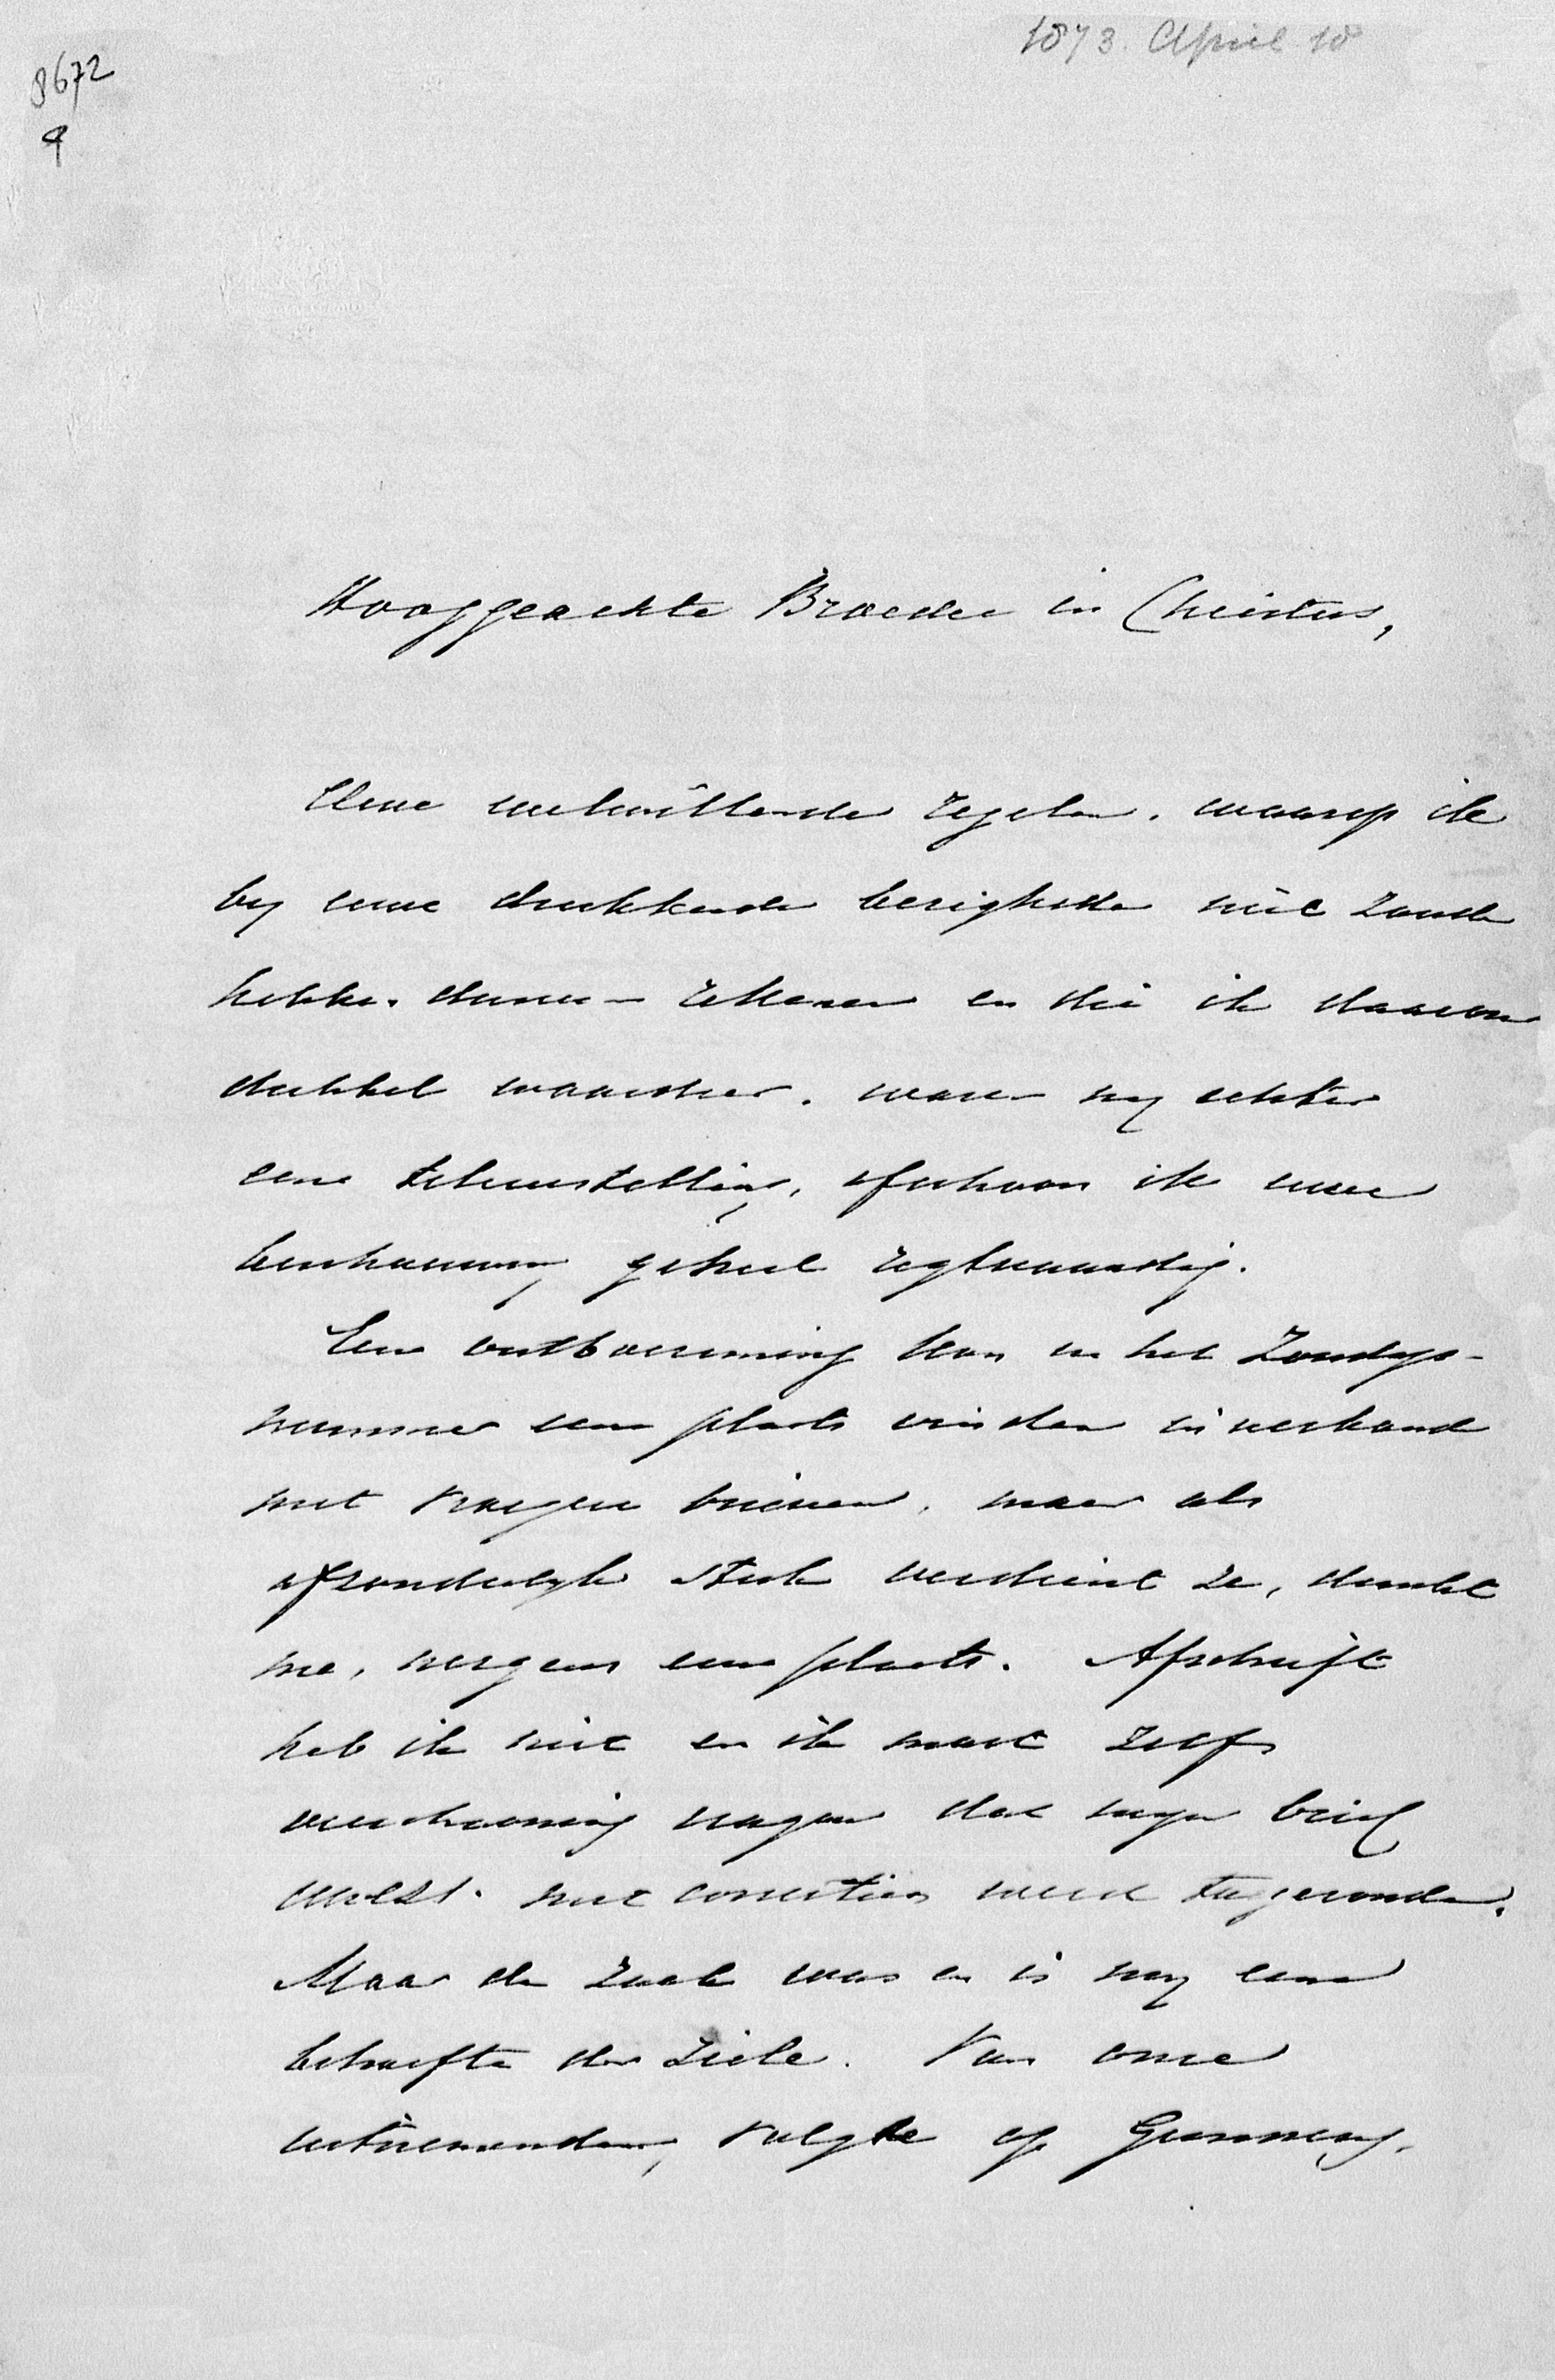 1873. April 18
8672
9
Hooggeachte Broeder in Christus,
Uwe welwillende regelen, waarop ik
by uwe drukkende bezigheden niet zoude
hebben durven rekenen en die ik daarom
dubbel waardeer, waren my echter
eene teleurstelling, ofschoon ik uwe
beschouwing geheel regtvaardig.
Eene ontboezeming kan in het Zondags-
nummer eene plaats vinden in verband
met vroegere brieven, maar als
afzonderlyk stuk verdient ze, dunkt
me, nergens eene plaats. Afschrift
heb ik niet en ik moet zelfs
verschooning vragen dat myn brief
met correctien werd toegezonden.
Maar de zaak was en is my eene
behoefte der ziele. Van onze
uitnemenden, volgde op Gunning,